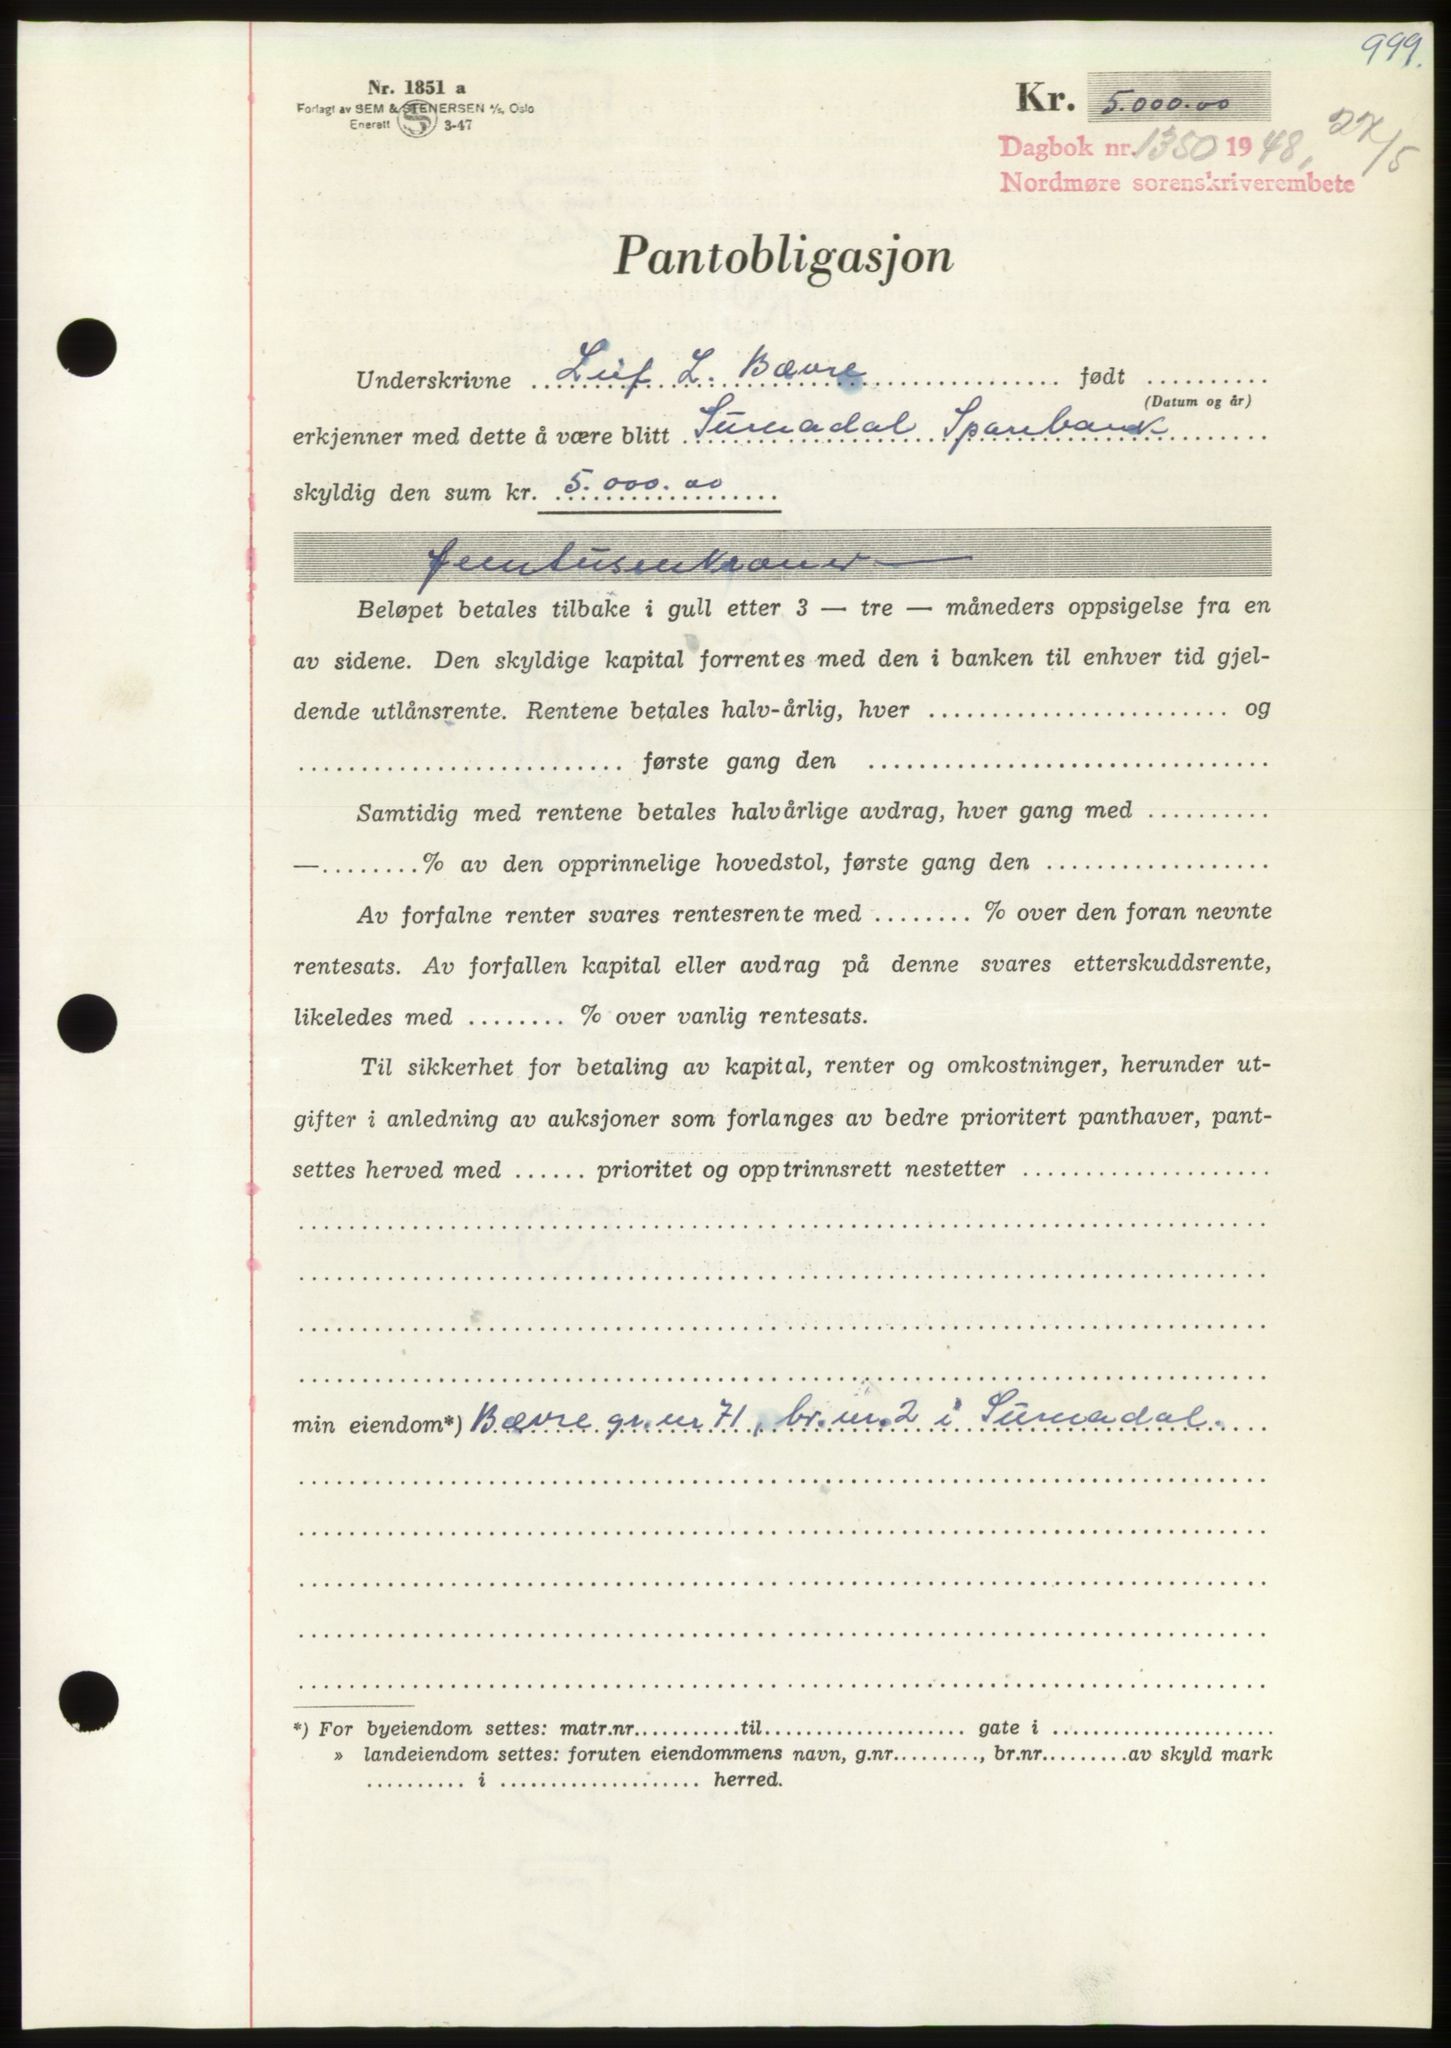 999.
Nr. 1851 a
Forlagt av SEM & STENERSEN A/S, Oslo
Enerett S 3-47
Kr. 5.000.00
Dagbok nr. 1350 1948, 27/5
Nordmøre sorenskriverembete
Pantobligasjon
Underskrivne Leif L. Bævre født ..........
(Datum og år)
erkjenner med dette å være blitt Surnadal Sparebank
skyldig den sum kr. 5.000.00
femtusenkroner —
Beløpet betales tilbake i gull etter 3 — tre — måneders oppsigelse fra en
av sidene. Den skyldige kapital forrentes med den i banken til enhver tid gjel-
dende utlånsrente. Rentene betales halv-årlig, hver .......................... og
.......................... første gang den ................................
Samtidig med rentene betales halvårlige avdrag, hver gang med ..........
—........% av den opprinnelige hovedstol, første gang den ..................
Av forfalne renter svares rentesrente med ........ % over den foran nevnte
rentesats. Av forfallen kapital eller avdrag på denne svares etterskuddsrente,
likeledes med ........ % over vanlig rentesats.
Til sikkerhet for betaling av kapital, renter og omkostninger, herunder ut-
gifter i anledning av auksjoner som forlanges av bedre prioritert panthaver, pant-
settes herved med ...... prioritet og opptrinnsrett nestetter ....................
min eiendom*) Bævre gr.nr 71, br.nr.2 i Surnadal.
*) For byeiendom settes: matr.nr...........til.................... gate i ......................
» landeiendom settes: foruten eiendommens navn, g.nr........., br.nr.........av skyld mark
.......... i .................... herred.